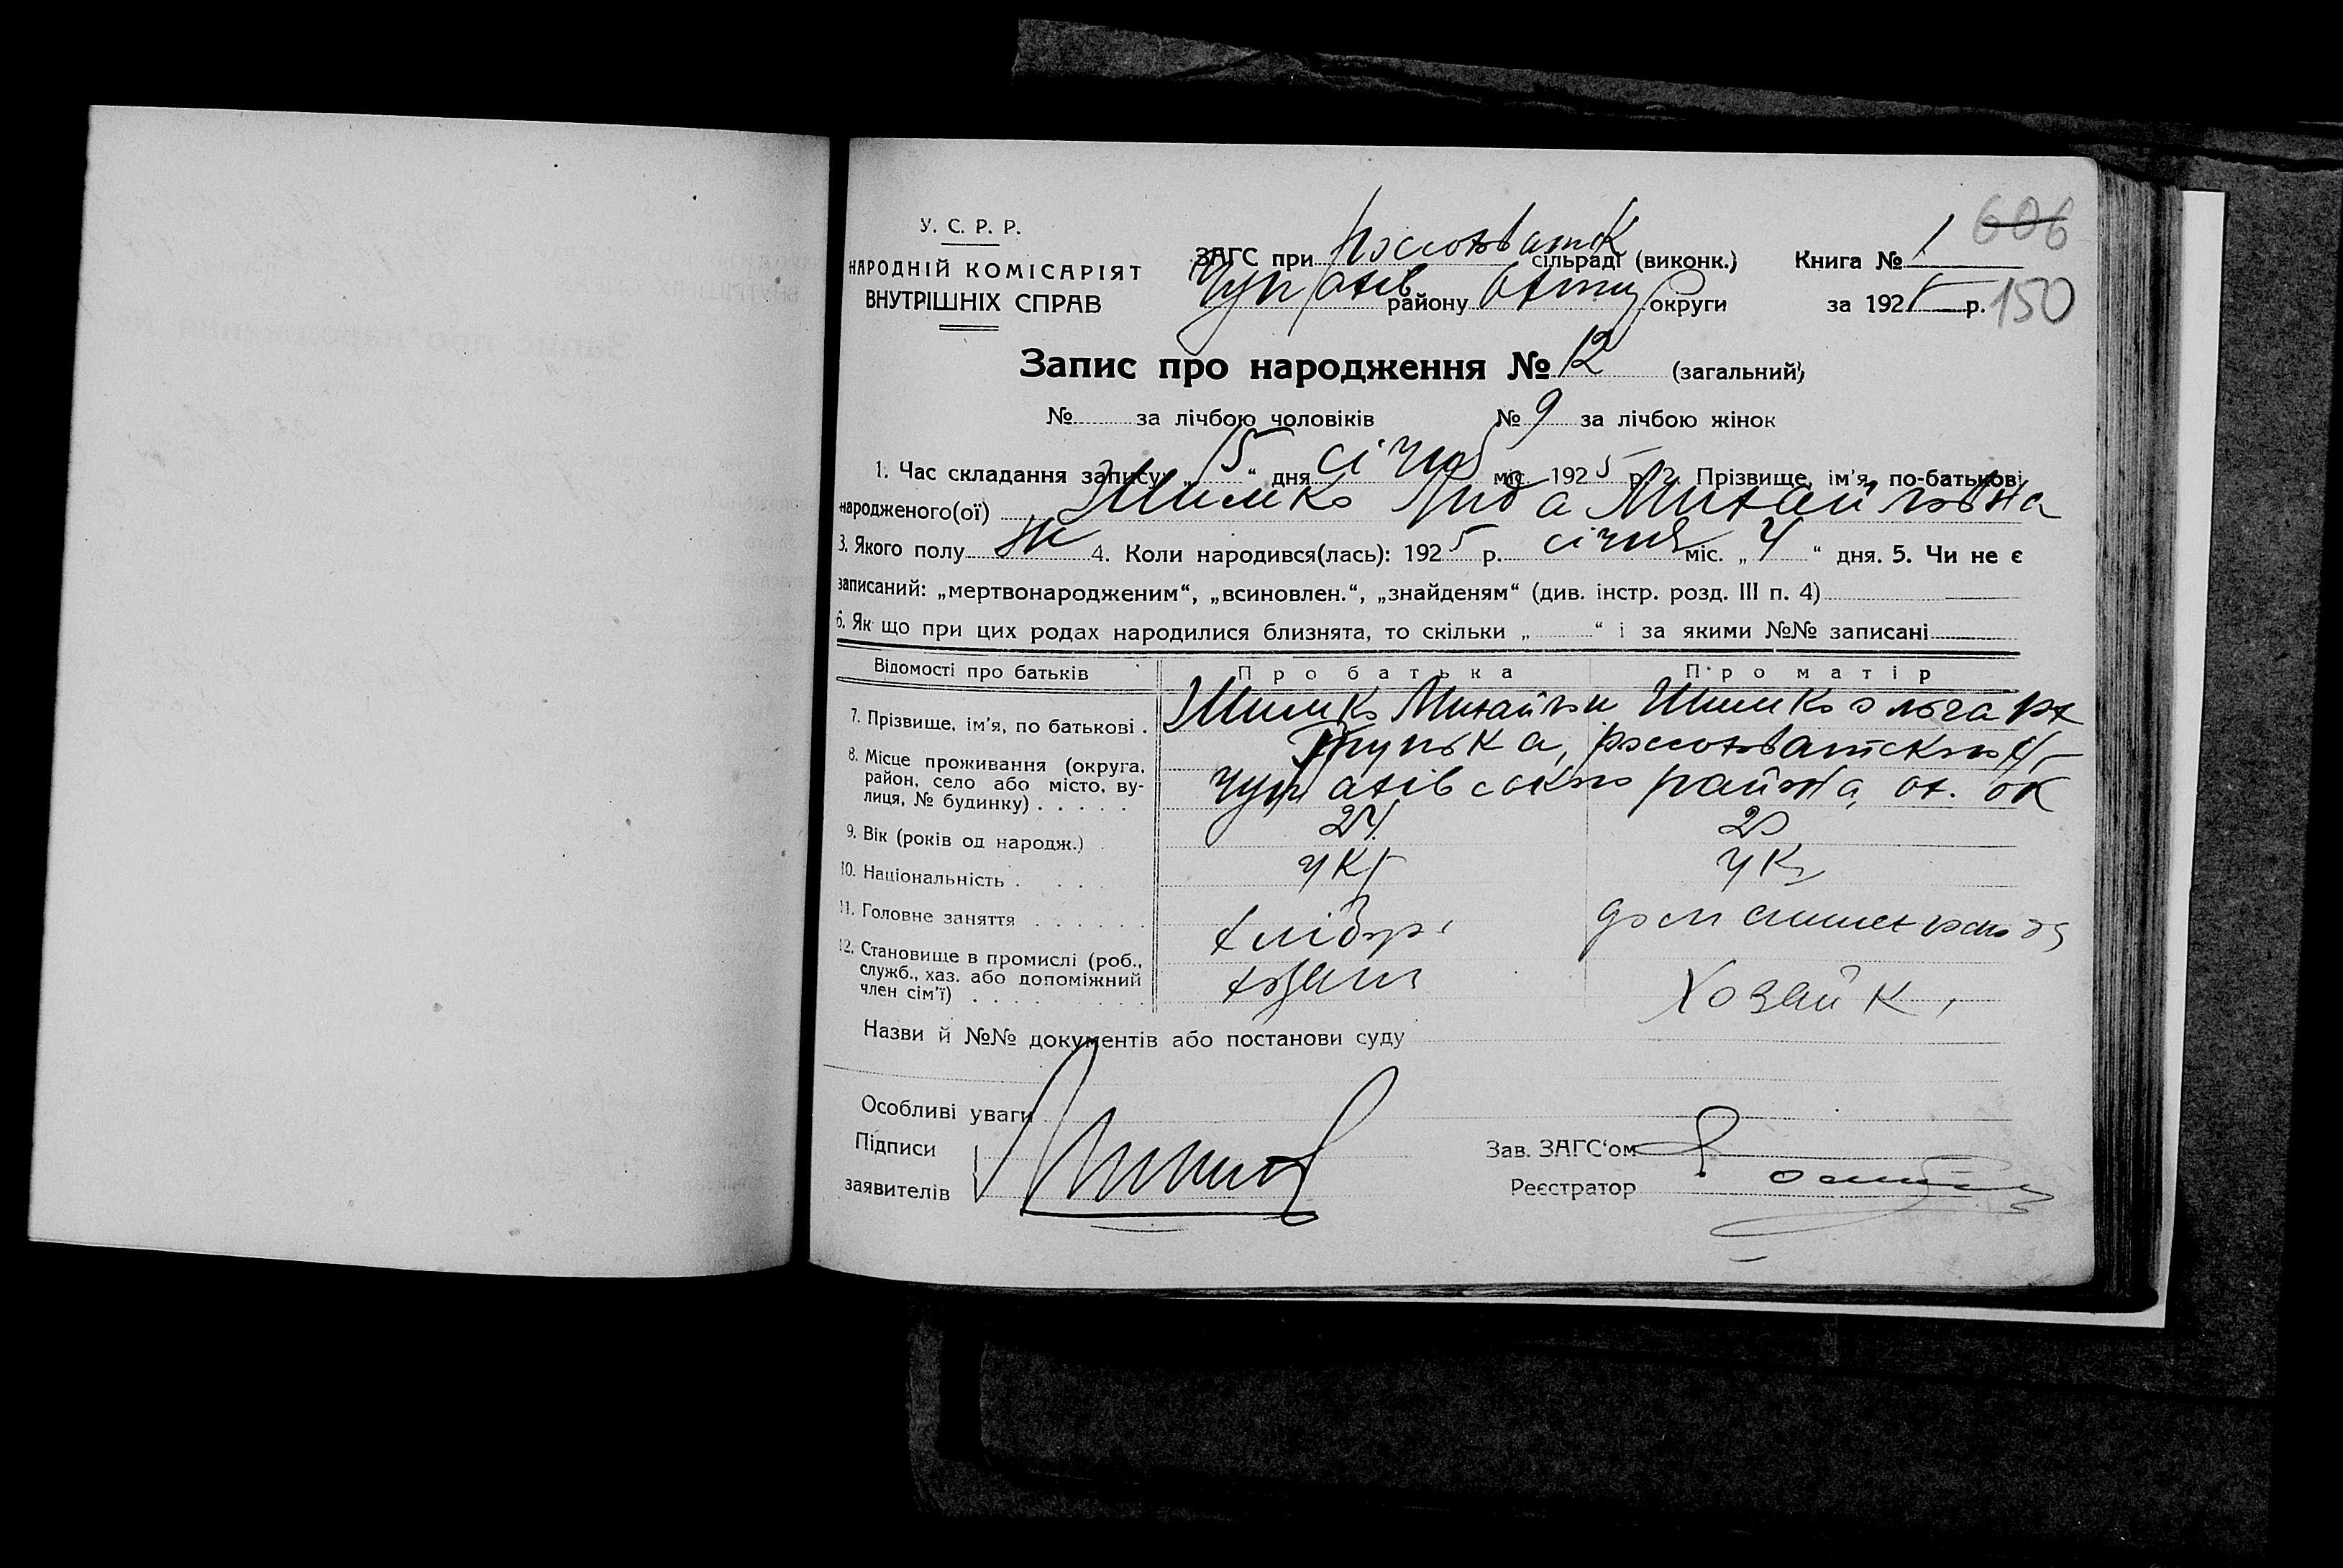 У. С. Р. Р.
НАРОДНІЙ КОМІСАРІЯТ
ВНУТРІШНІХ СПРАВ
ЗАГС при сільраді (виконк.)
району округи
Книга № 1 606
за 1925 р. 150
Запис про народження № 12 (загальний)
№ за лічбою чоловіків № 9 за лічбою жінок
1. Час складання запису: „ 15 “ дня січня міс. 1925 р. 2. Прізвище, ім'я, по-батькові
народженого(ої) Шимко Лида Михайловна
3. Якого полу Ж 4. Коли народився(лась): 1925 р. січня міс. „ 4 “ дня. 5. Чи не є
записаний: „мертвонародженим“, „всиновлен.“, „знайденям“ (див. інстр. розд. III п. 4)
6. Як що при цих родах народилися близнята, то скільки „ “ і за якими №№ записані
Відомості про батьків Про батька Про матір
7. Прізвище, ім'я, по батькові . Шимко Михайло Шимко Ольга
8. Місце проживання (округа,
район, село або місто, ву-
лиця, № будинку) . . . . . района, ох. ок
9. Вік (років од народж.) . 24 20
10. Національність . . . . укр ук
11. Головне заняття . . . . . . хлібор дом
12. Становище в промислі (роб.,
служб., хаз. або допоміжний
член сім'ї) . . . . . . . . . хозяин Хозайк
Назви й №№ документів або постанови суду
Особливі уваги
Підписи
заявителів
Зав. ЗАГС'ом
Реєстратор